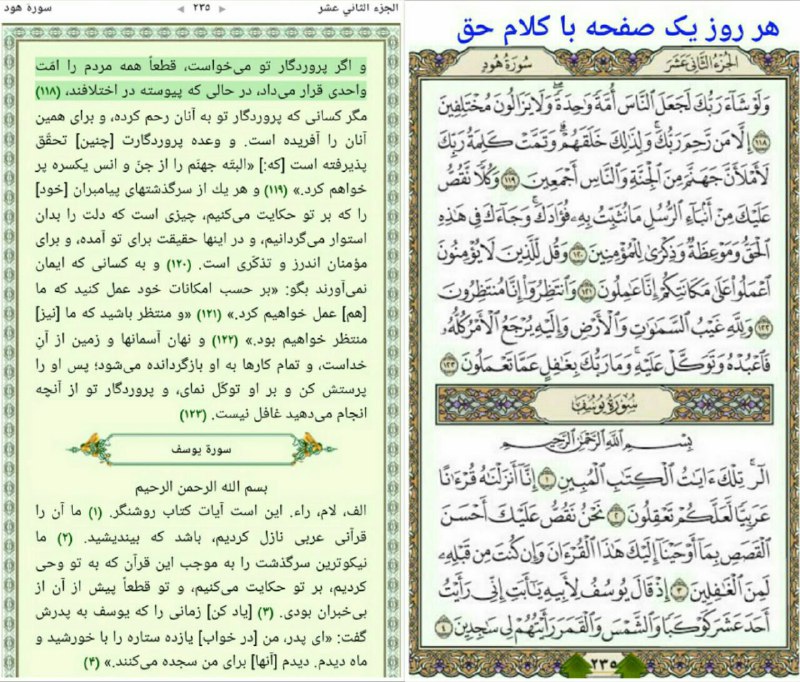 هر روز یک صفحه با کلام حق
الجزء الثاني عشر
سورة هود
وَلَوْ شَآءَ رَبُّكَ لَجَعَلَ ٱلنَّاسَ أُمَّةً وَٰحِدَةً ۖ وَلَا يَزَالُونَ مُخْتَلِفِينَ
١١٨ إِلَّا مَن رَّحِمَ رَبُّكَ ۚ وَلِذَٰلِكَ خَلَقَهُمْ ۗ وَتَمَّتْ كَلِمَةُ رَبِّكَ
لَأَمْلَأَنَّ جَهَنَّمَ مِنَ ٱلْجِنَّةِ وَٱلنَّاسِ أَجْمَعِينَ ١١٩ وَكُلًّا نَّقُصُّ
عَلَيْكَ مِنْ أَنۢبَآءِ ٱلرُّسُلِ مَا نُثَبِّتُ بِهِۦ فُؤَادَكَ ۚ وَجَآءَكَ فِي هَٰذِهِ
ٱلْحَقُّ وَمَوْعِظَةٌ وَذِكْرَىٰ لِلْمُؤْمِنِينَ ١٢٠ وَقُل لِّلَّذِينَ لَا يُؤْمِنُونَ
ٱعْمَلُوا۟ عَلَىٰ مَكَانَتِكُمْ إِنَّا عَٰمِلُونَ ١٢١ وَٱنتَظِرُوٓا۟ إِنَّا مُنتَظِرُونَ
١٢٢ وَلِلَّهِ غَيْبُ ٱلسَّمَٰوَٰتِ وَٱلْأَرْضِ وَإِلَيْهِ يُرْجَعُ ٱلْأَمْرُ كُلُّهُۥ
فَٱعْبُدْهُ وَتَوَكَّلْ عَلَيْهِ ۚ وَمَا رَبُّكَ بِغَٰفِلٍ عَمَّا تَعْمَلُونَ ١٢٣
سورة يوسف
بِسْمِ ٱللَّهِ ٱلرَّحْمَٰنِ ٱلرَّحِيمِ
الٓر ۚ تِلْكَ ءَايَٰتُ ٱلْكِتَٰبِ ٱلْمُبِينِ ١ إِنَّآ أَنزَلْنَٰهُ قُرْءَٰنًا
عَرَبِيًّا لَّعَلَّكُمْ تَعْقِلُونَ ٢ نَحْنُ نَقُصُّ عَلَيْكَ أَحْسَنَ
ٱلْقَصَصِ بِمَآ أَوْحَيْنَآ إِلَيْكَ هَٰذَا ٱلْقُرْءَانَ وَإِن كُنتَ مِن قَبْلِهِۦ
لَمِنَ ٱلْغَٰفِلِينَ ٣ إِذْ قَالَ يُوسُفُ لِأَبِيهِ يَٰٓأَبَتِ إِنِّي رَأَيْتُ
أَحَدَ عَشَرَ كَوْكَبًا وَٱلشَّمْسَ وَٱلْقَمَرَ رَأَيْتُهُمْ لِي سَٰجِدِينَ ٤
٢٣٥
الجزء الثاني عشر
٢٣٥
سورة هود
و اگر پروردگار تو می‌خواست، قطعاً همه مردم را امّت
واحدی قرار می‌داد، در حالی که پیوسته در اختلافند، (۱۱۸)
مگر کسانی که پروردگار تو به آنان رحم کرده، و برای همین
آنان را آفریده است. و وعده پروردگارت [چنین] تحقّق
پذیرفته است [که:] «البتّه جهنّم را از جنّ و انس یکسره پر
خواهم کرد.» (۱۱۹) و هر یك از سرگذشتهای پیامبران [خود]
را که بر تو حکایت می‌کنیم، چیزی است که دلت را بدان
استوار می‌گردانیم، و در اینها حقیقت برای تو آمده، و برای
مؤمنان اندرز و تذکّری است. (۱۲۰) و به کسانی که ایمان
نمی‌آورند بگو: «بر حسب امکانات خود عمل کنید که ما
[هم] عمل خواهیم کرد.» (۱۲۱) «و منتظر باشید که ما [نیز]
منتظر خواهیم بود.» (۱۲۲) و نهان آسمانها و زمین از آنِ
خداست، و تمام کارها به او بازگردانده می‌شود؛ پس او را
پرستش کن و بر او توکّل نمای، و پروردگار تو از آنچه
انجام می‌دهید غافل نیست. (۱۲۳)
سورة یوسف
بسم الله الرحمن الرحیم
الف، لام، راء. این است آیات کتاب روشنگر. (۱) ما آن را
قرآنی عربی نازل کردیم، باشد که بیندیشید. (۲) ما
نیکوترین سرگذشت را به موجب این قرآن که به تو وحی
کردیم، بر تو حکایت می‌کنیم، و تو قطعاً پیش از آن از
بی‌خبران بودی. (۳) [یاد کن] زمانی را که یوسف به پدرش
گفت: «ای پدر، من [در خواب] یازده ستاره را با خورشید و
ماه دیدم. دیدم [آنها] برای من سجده می‌کنند.» (۴)